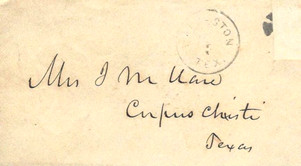 TEX.
Mrs J M Ware
Corpus Christi
Texas